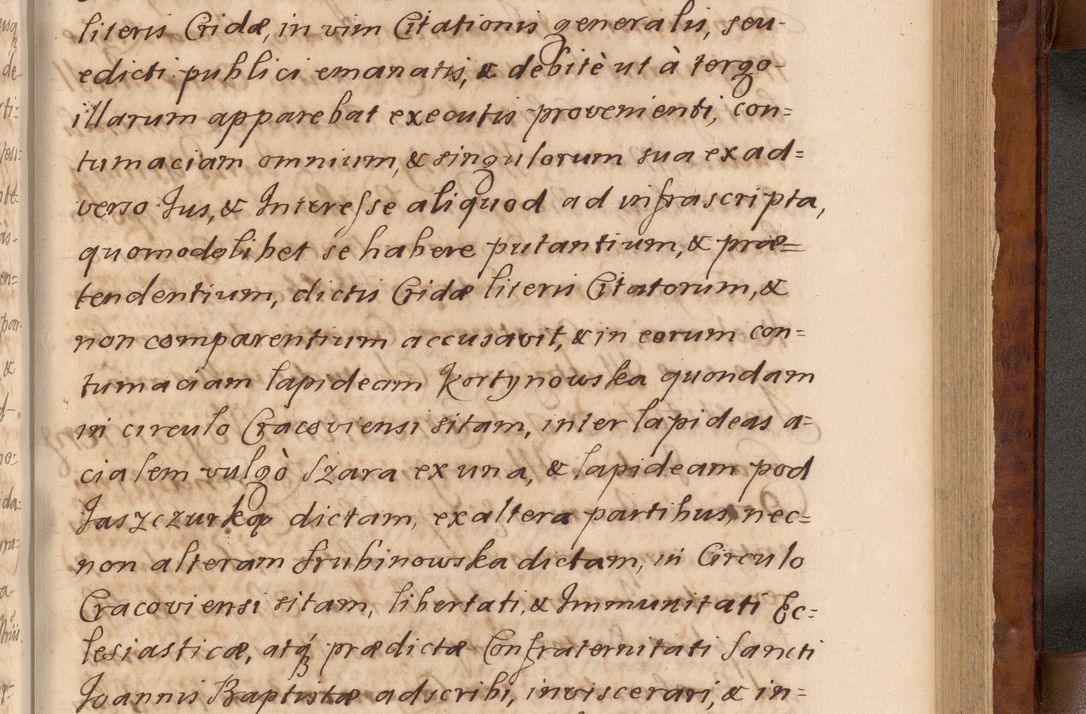 literis Cridæ, in vim Citationis generalis, seu
edicti publici emanatis, & debitè ut à tergo
illarum apparebat executis provenienti, con=
tumaciam omnium, & singulorum sua ex ad=
verso Jus, & Interesse aliquod ad infrascripta,
quomodolibet se habere putantium, & præ=
tendentium, dictis Cridæ literis Citatorum, &
non comparentium accusavit, & in eorum con=
tumaciam lapideam Kortynowska quondam
in circulo Cracoviensi sitam, inter lapideas a=
cialem vulgò Szara ex una, & lapideam pod
Jaszczurką dictam, ex altera partibus, nec=
non alteram Srubinowska dictam, in Circulo
Cracoviensi sitam, libertati, & Immunitati Ec=
lesiasticæ, atq́ prædictæ Confraternitati Sancti
Joannis Baptistæ adscribi, inviscerari, & in=